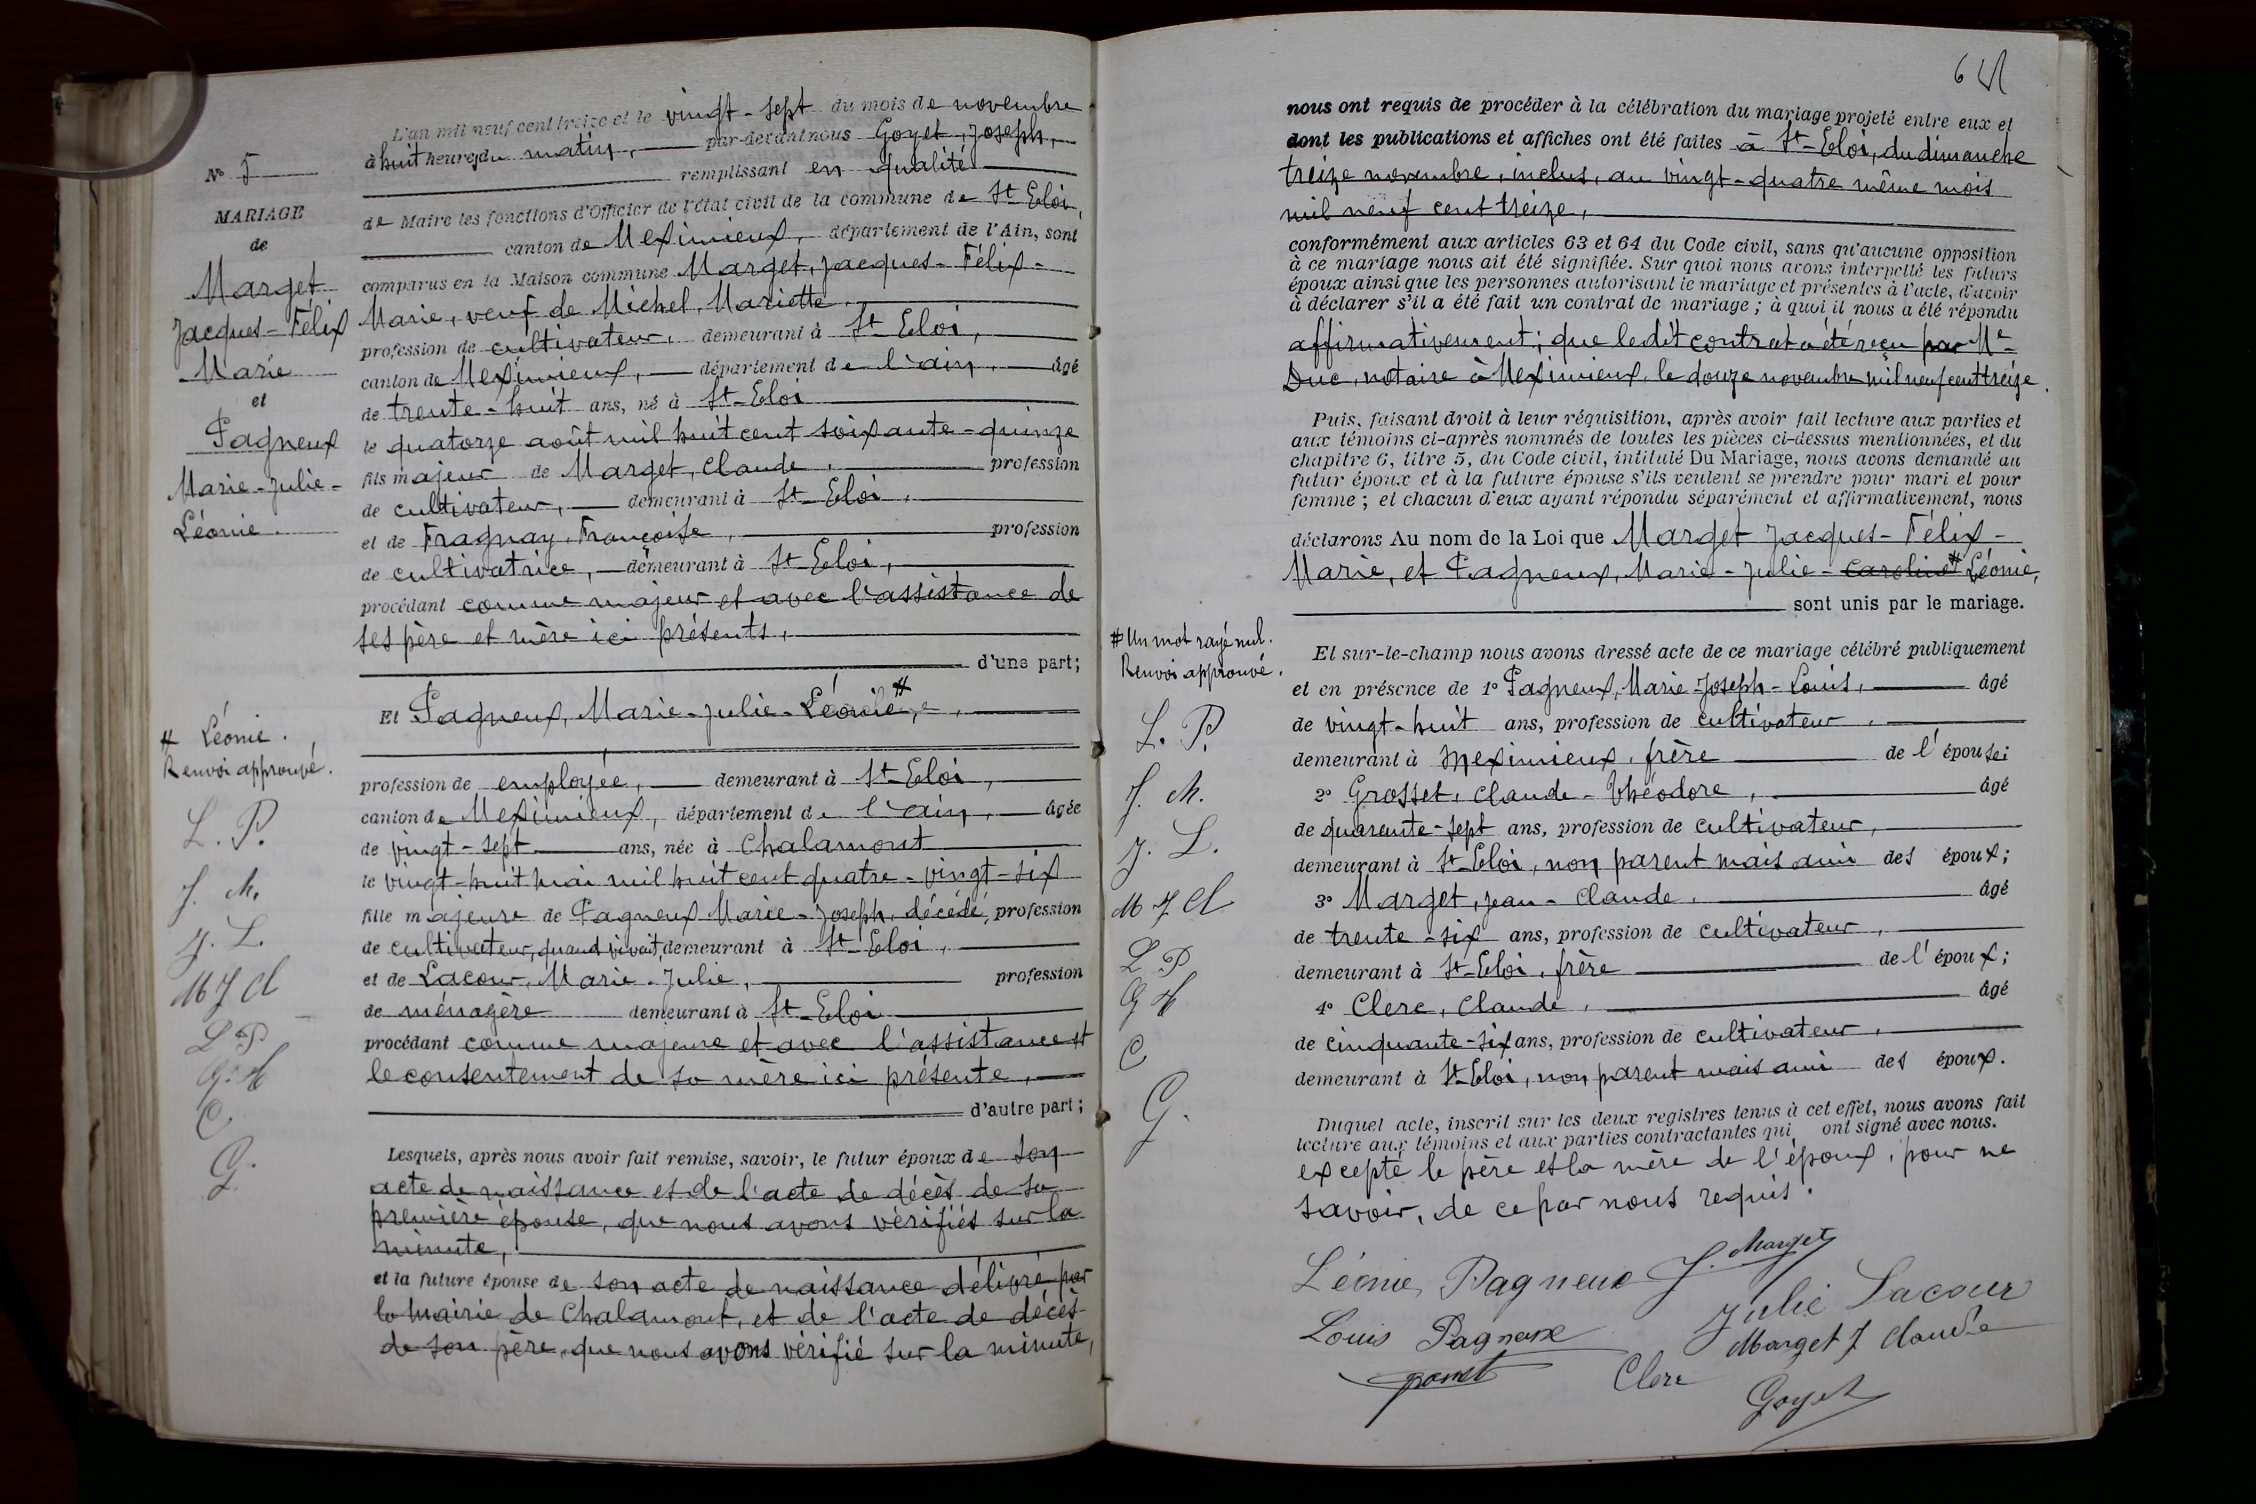 N° 5
MARIAGE
de
Marget
Jacques-Félix
Marie
et
Pagneux
Marie-Julie-
Léonie.
# Léonie.
Renvoi approuvé.
L. P.
J. M.
J. L.
M J Cl
L P
G. H
C.
G.
L'an mil neuf cent treize et le vingt-sept du mois de novembre
à huit heures du matin, par-devant nous Goyet, Joseph,
remplissant en qualité
de Maire les fonctions d'Officier de l'état civil de la commune de St-Eloi,
canton de Meximieux, département de l'Ain, sont
comparus en la Maison commune Marget, Jacques-Félix-
Marie, veuf de Michel, Mariette
profession de cultivateur, demeurant à St-Eloi,
canton de Meximieux, département de l'ain, âgé
de trente-huit ans, né à St-Eloi
le quatorze août mil huit cent soixante-quinze
fils majeur de Marget, Claude, profession
de cultivateur, demeurant à St-Eloi,
et de Fragnay, Françoise, profession
de cultivatrice, demeurant à St-Eloi,
procédant comme majeur et avec l'assistance de
ses père et mère ici présents,
d'une part;
Et Pagneux, Marie-Julie-Léonie,#
profession de employée, demeurant à St-Eloi,
canton de Meximieux, département de l'ain, âgée
de vingt-sept ans, née à Chalamont
le vingt-huit mai mil huit cent quatre-vingt-six
fille majeure de Pagneux Marie-Joseph, décédé, profession
de cultivateur, quand vivait, demeurant à St-Eloi,
et de Lacour, Marie-Julie, profession
de ménagère demeurant à St-Eloi
procédant comme majeure et avec l'assistance et
le consentement de sa mère ici présente,
d'autre part;
Lesquels, après nous avoir fait remise, savoir, le futur époux de son
acte de naissance et de l'acte de décès de sa
première épouse, que nous avons vérifiés sur la
minute,
et la future épouse de son acte de naissance délivré par
la mairie de Chalamont, et de l'acte de décès
de son père, que nous avons vérifié sur la minute,
nous ont requis de procéder à la célébration du mariage projeté entre eux et
dont les publications et affiches ont été faites à St-Eloi, du dimanche
treize novembre, inclus, au vingt-quatre même mois
mil neuf cent treize,
conformément aux articles 63 et 64 du Code civil, sans qu'aucune opposition
à ce mariage nous ait été signifiée. Sur quoi nous avons interpellé les futurs
époux ainsi que les personnes autorisant le mariage et présentes à l'acte, d'avoir
à déclarer s'il a été fait un contrat de mariage; à quoi il nous a été répondu
affirmativement; que ledit contrat a été reçu par Me
Duc, notaire à Meximieux, le douze novembre mil neuf cent treize.
Puis, faisant droit à leur réquisition, après avoir fait lecture aux parties et
aux témoins ci-après nommés de toutes les pièces ci-dessus mentionnées, et du
chapitre 6, titre 5, du Code civil, intitulé Du Mariage, nous avons demandé au
futur époux et à la future épouse s'ils veulent se prendre pour mari et pour
femme; et chacun d'eux ayant répondu séparément et affirmativement, nous
déclarons Au nom de la Loi que Marget Jacques-Félix-
Marie, et Pagneux, Marie-Julie-Caroline# Léonie,
sont unis par le mariage.
# Un mot rayé nul.
Renvoi approuvé.
L. P.
J. M.
J. L.
M J Cl
L P
G H
C
G.
Et sur-le-champ nous avons dressé acte de ce mariage célébré publiquement
et en présence de 1° Pagneux, Marie-Joseph-Louis, âgé
de vingt-huit ans, profession de cultivateur,
demeurant à Meximieux, frère de l'épouse;
2° Grosset, Claude-Théodore, âgé
de quarante-sept ans, profession de cultivateur,
demeurant à St-Eloi, non parent mais ami des époux;
3° Marget, Jean-Claude, âgé
de trente-six ans, profession de cultivateur,
demeurant à St-Eloi, frère de l'époux;
4° Clerc, Claude, âgé
de cinquante-six ans, profession de cultivateur,
demeurant à St-Eloi, non parent mais ami des époux.
Duquel acte, inscrit sur les deux registres tenus à cet effet, nous avons fait
lecture aux témoins et aux parties contractantes qui ont signé avec nous.
excepté le père et la mère de l'époux, pour ne
savoir, de ce par nous requis.
Léonie Pagneux J. Marget
Julie Lacour
Louis Pagneux
Marget J Claude
Clerc
Goyet